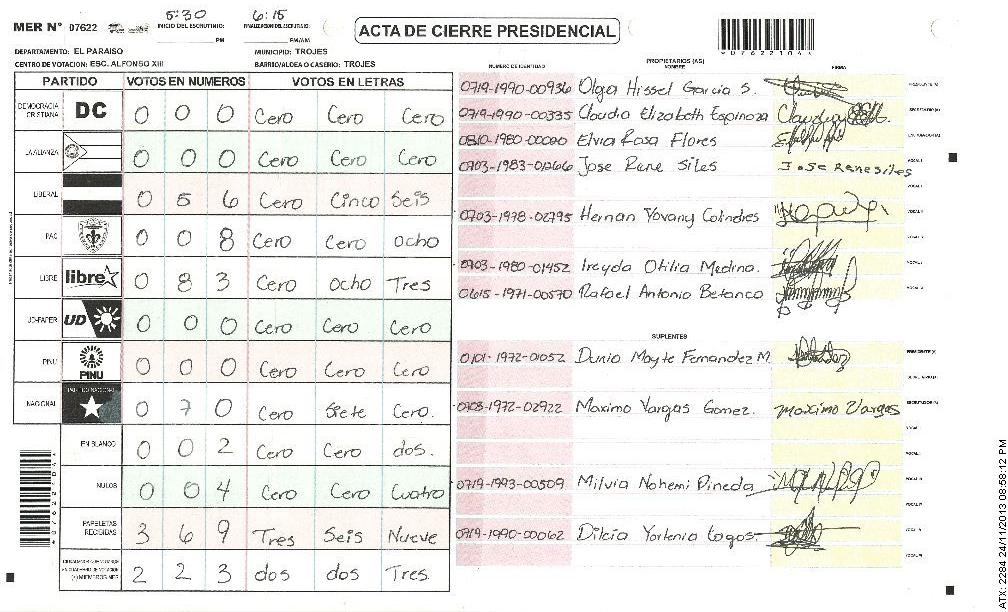 5:30 6:15
MER Nº 07622 INICIO DEL ESCRUTINIO: PM FINALIZACION DEL ESCRUTINIO: PM/AM
ACTA DE CIERRE PRESIDENCIAL
DEPARTAMENTO: EL PARAISO MUNICIPIO: TROJES
CENTRO DE VOTACION: ESC. ALFONSO XIII BARRIO/ALDEA O CASERIO: TROJES
PARTIDO VOTOS EN NUMEROS VOTOS EN LETRAS
DEMOCRACIA CRISTIANA DC 0 0 0 Cero Cero Cero
LA ALIANZA 0 0 0 Cero Cero Cero
LIBERAL 0 5 6 Cero Cinco Seis
PAC 0 0 8 Cero Cero ocho
LIBRE libre 0 8 3 Cero ocho Tres
UD-FAPER UD 0 0 0 Cero Cero Cero
PINU PINU 0 0 0 Cero Cero Cero
NACIONAL PARTIDO NACIONAL 0 7 0 Cero Siete Cero.
EN BLANCO 0 0 2 Cero Cero dos.
NULOS 0 0 4 Cero Cero Cuatro
PAPELETAS RECIBIDAS 3 6 9 Tres Seis Nueve
2 2 3 dos dos Tres.
NUMERO DE IDENTIDAD PROPIETARIOS (AS) NOMBRE FIRMA
0719-1990-00936 Olga Hissel Garcia S. PRESIDENTE (A)
0719-1990-00335 Claudia Elizabeth Espinoza Claudia SECRETARIO (A)
Elvia Rosa Flores ESCRUTADOR (A)
0703-1983-01266 Jose Rene Siles Jose Rene siles VOCAL I
0703-1978-02795 Hernan Yovany Colindres
0703-1980-01452 Ireyda Otilia Medina.
0615-1971-00570 Rafael Antonio Betanco
SUPLENTES
0101-1972-01052 Dunia Mayte Fernandez M. PRESIDENTE (A)
SECRETARIO (A)
0708-1972-02922 Maximo Vargas Gomez. Maximo Vargas ESCRUTADOR (A)
0719-1993-00509 Milvia Nohemi Pineda
0719-1990-00062 Dilcia Yorlenia Lagos
ATX: 2284 24/11/2013 08:58:12 PM